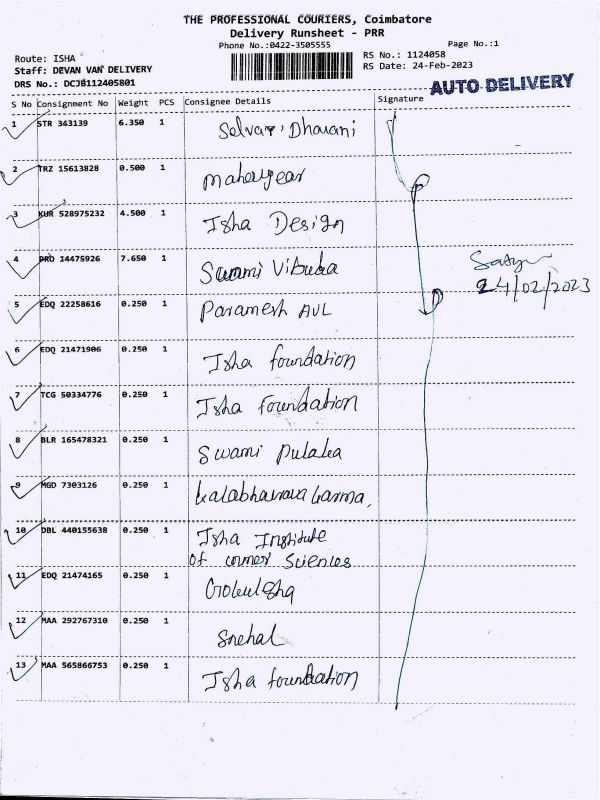 THE PROFESSIONAL COURIERS, Coimbatore
Delivery Runsheet - PRR
Phone No.:0422-3505555
Page No.:1
Route: ISHA
RS No.: 1124058
Staff: DEVAN VAN DELIVERY
RS Date: 24-Feb-2023
DRS No.: DCJB112405801
AUTO DELIVERY
S No Consignment No Weight PCS Consignee Details Signature
1 STR 343139 6.350 1 Selvar, Dharani
2 TRZ 15613828 0.500 1
3 KUR 528975232 4.500 1 Isha Design
4 PRO 14475926 7.650 1 Swami Vibuda
24/02/2023
5 EDQ 22258616 0.250 1 Paramesh AVL
6 EDQ 21471906 0.250 1 Isha foundation
7 TCG 50334776 0.250 1 Isha foundation
8 BLR 165478321 0.250 1 Swami Pulaka
9 MGD 7303126 0.250 1
10 DBL 440155638 0.250 1 Isha Institute
of Inner Sciences
11 EDQ 21474165 0.250 1
12 MAA 292767310 0.250 1 Snehal
13 MAA 565866753 0.250 1 Isha foundation